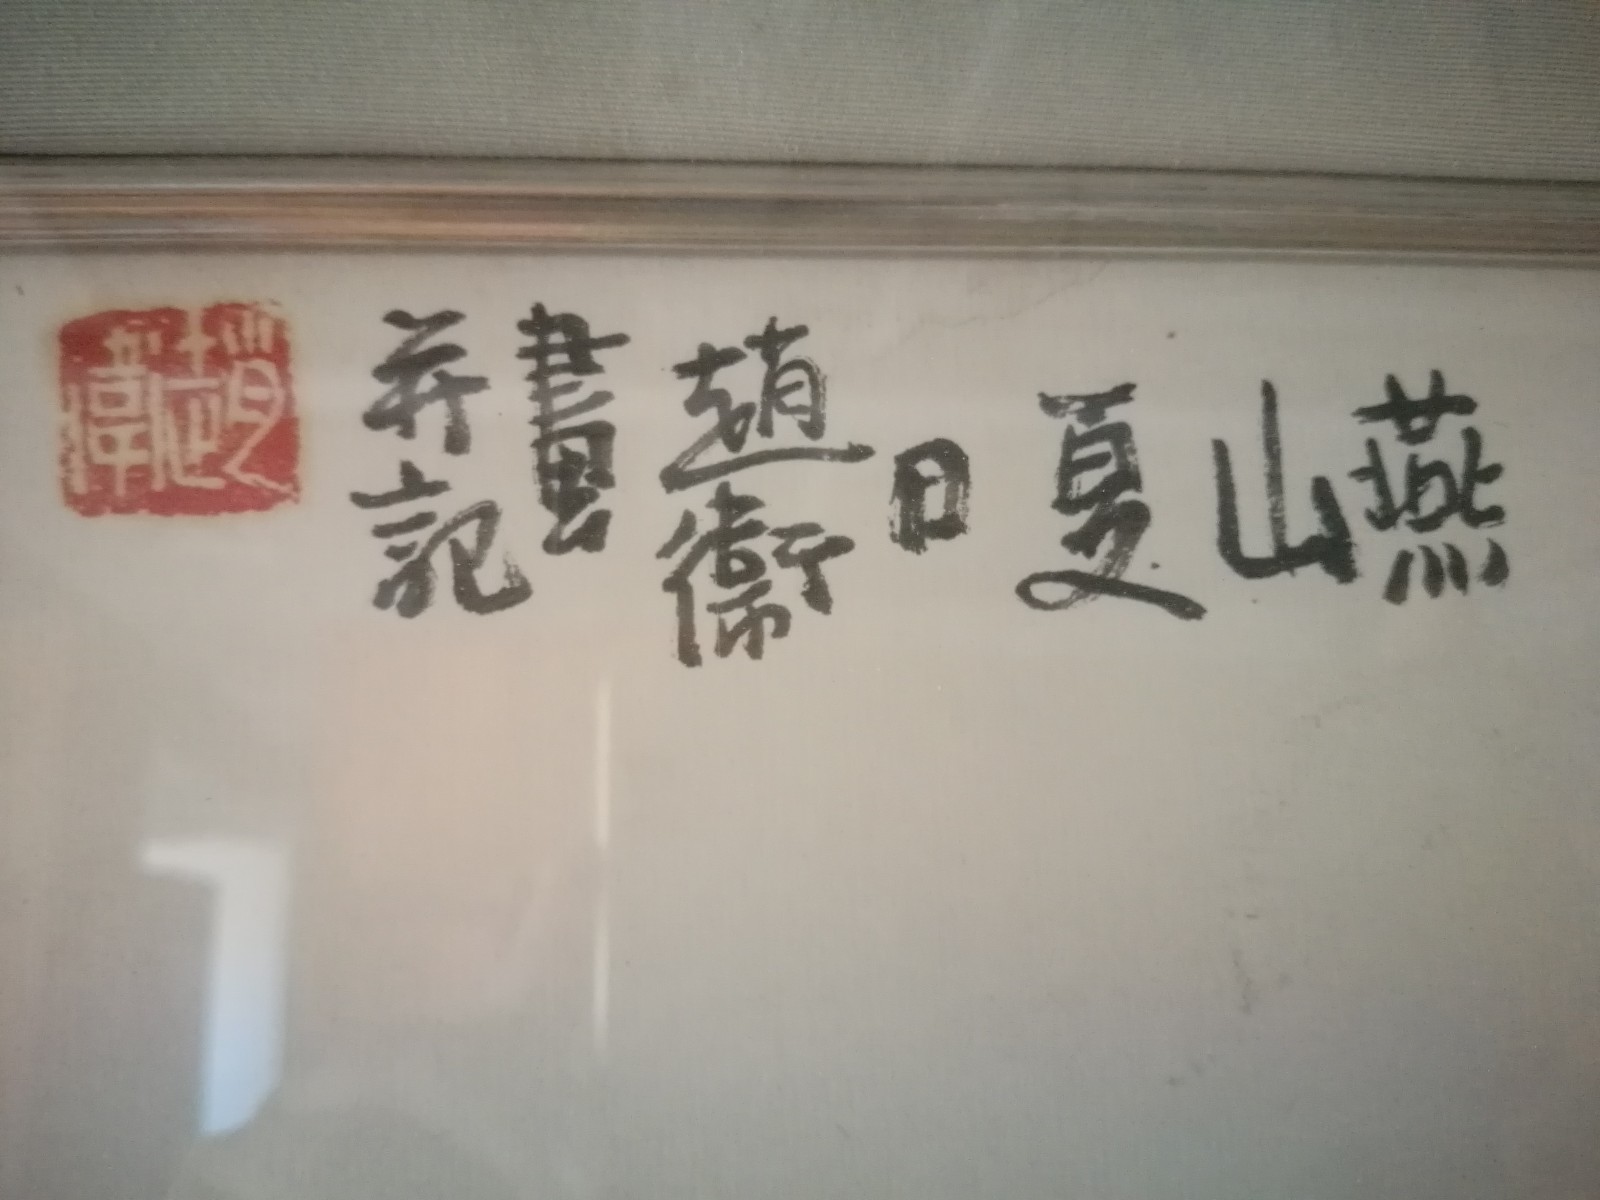 燕
山
夏
日
趙衛
畫
并記
趙衛